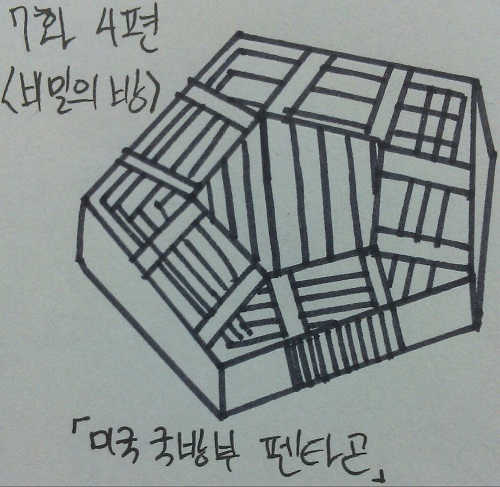 7화 4편
<비밀의 방>
「미국 국방부 펜타곤」